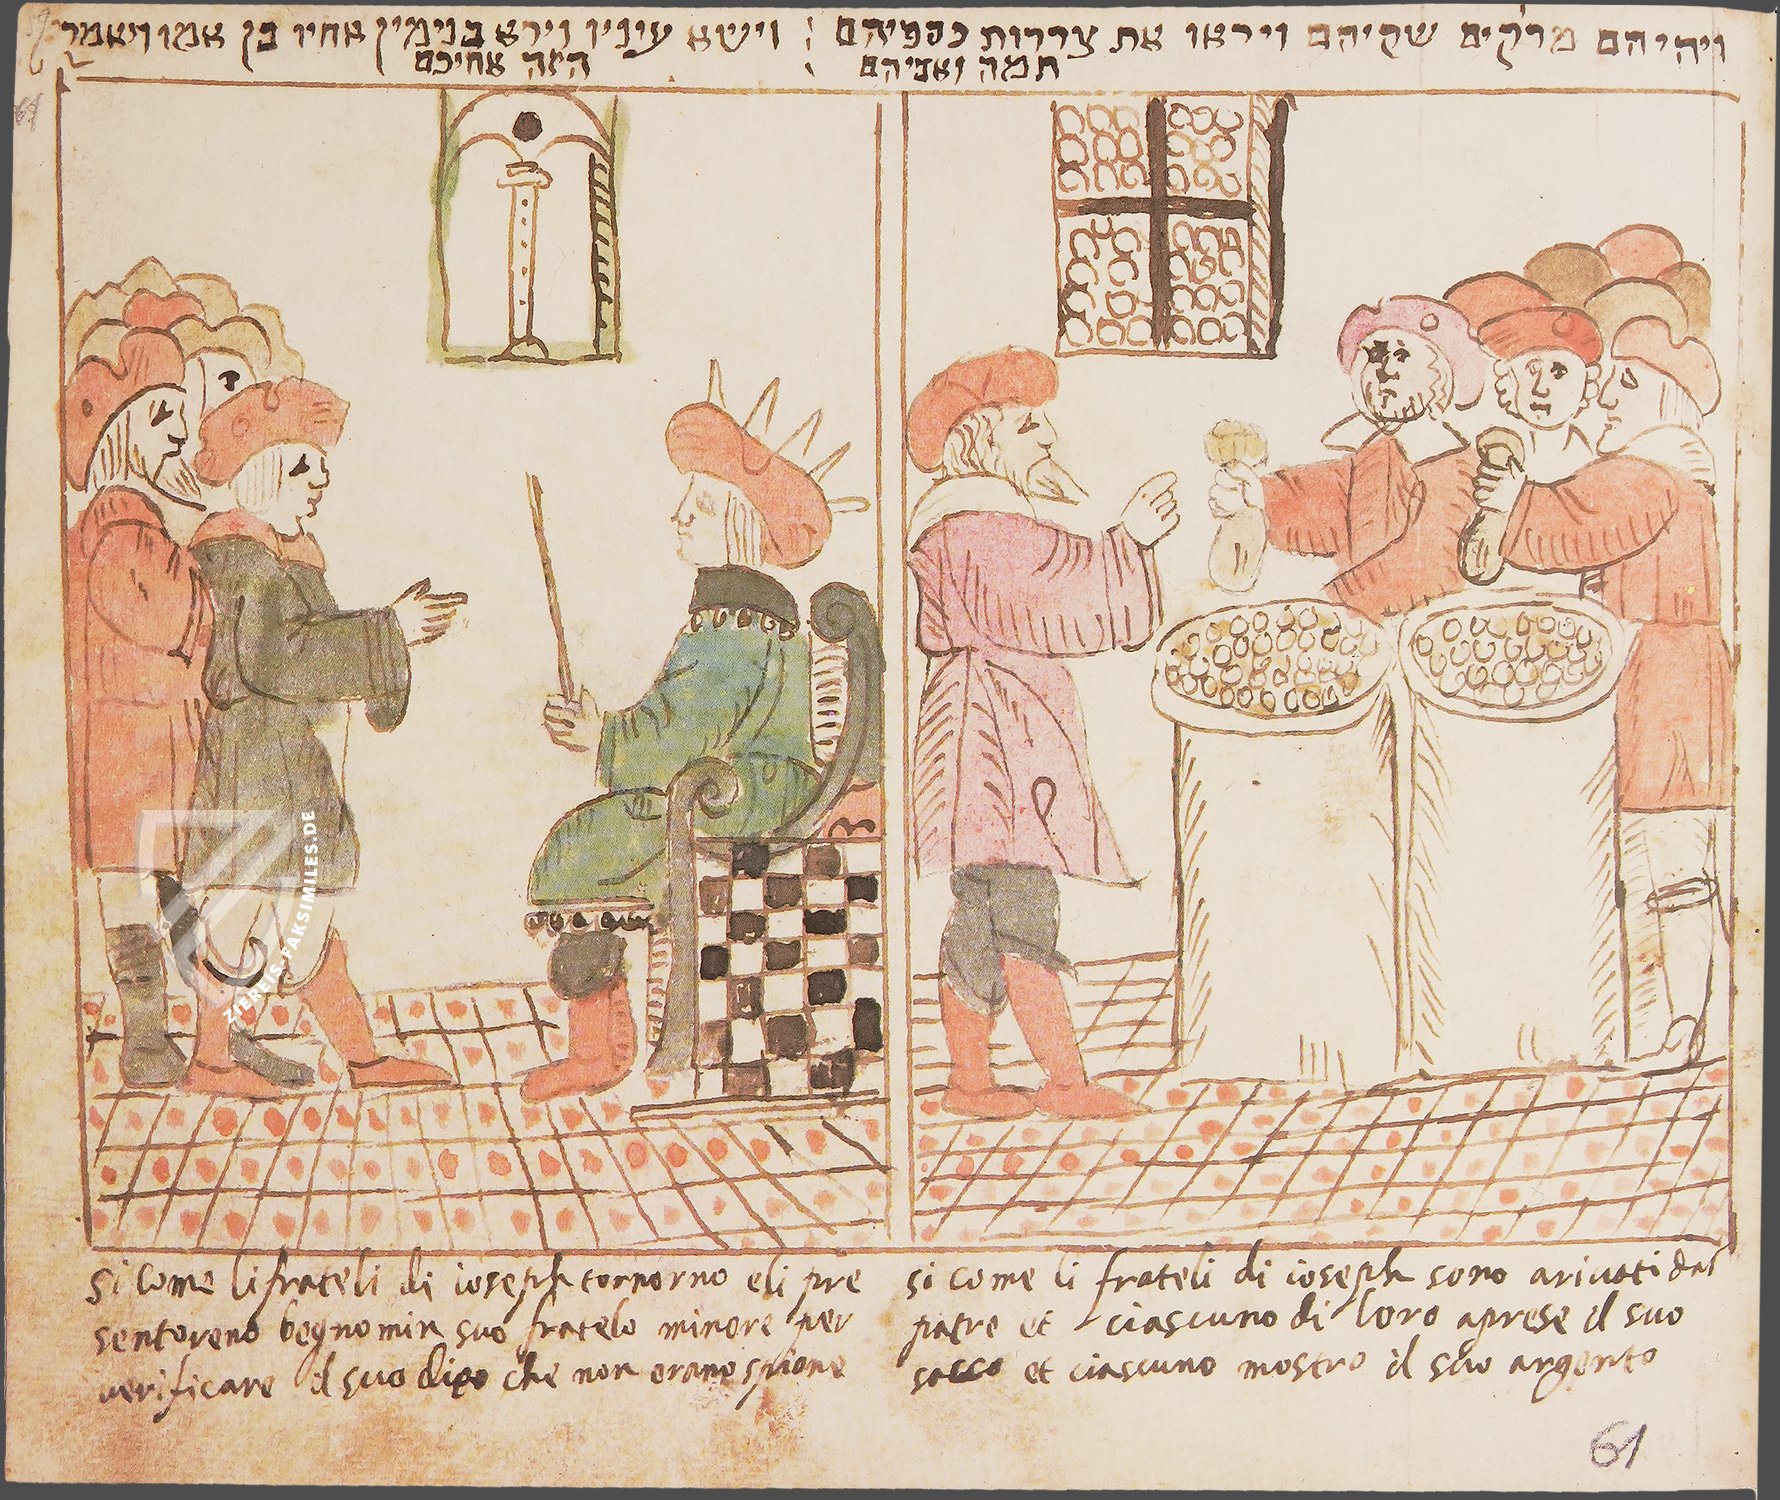 ויהי הם מרקים שקיהם ויראו את צררות כספיהם
תמה ואביהם
וישא עיניו וירא בנימין אחיו בן אמו ויאמר
הזה אחיכם
61
si come li frateli di ioseph tornorno eli pre
sentoreno begnomin suo fratelo minore per
verificare il suo dito che non erano spione
si come li frateli di ioseph sono arivati dal
patre et ciascuno di loro aprese il suo
sacco et ciascuno mostro il suo argento
61
ZIEREIS-FAKSIMILES.DE